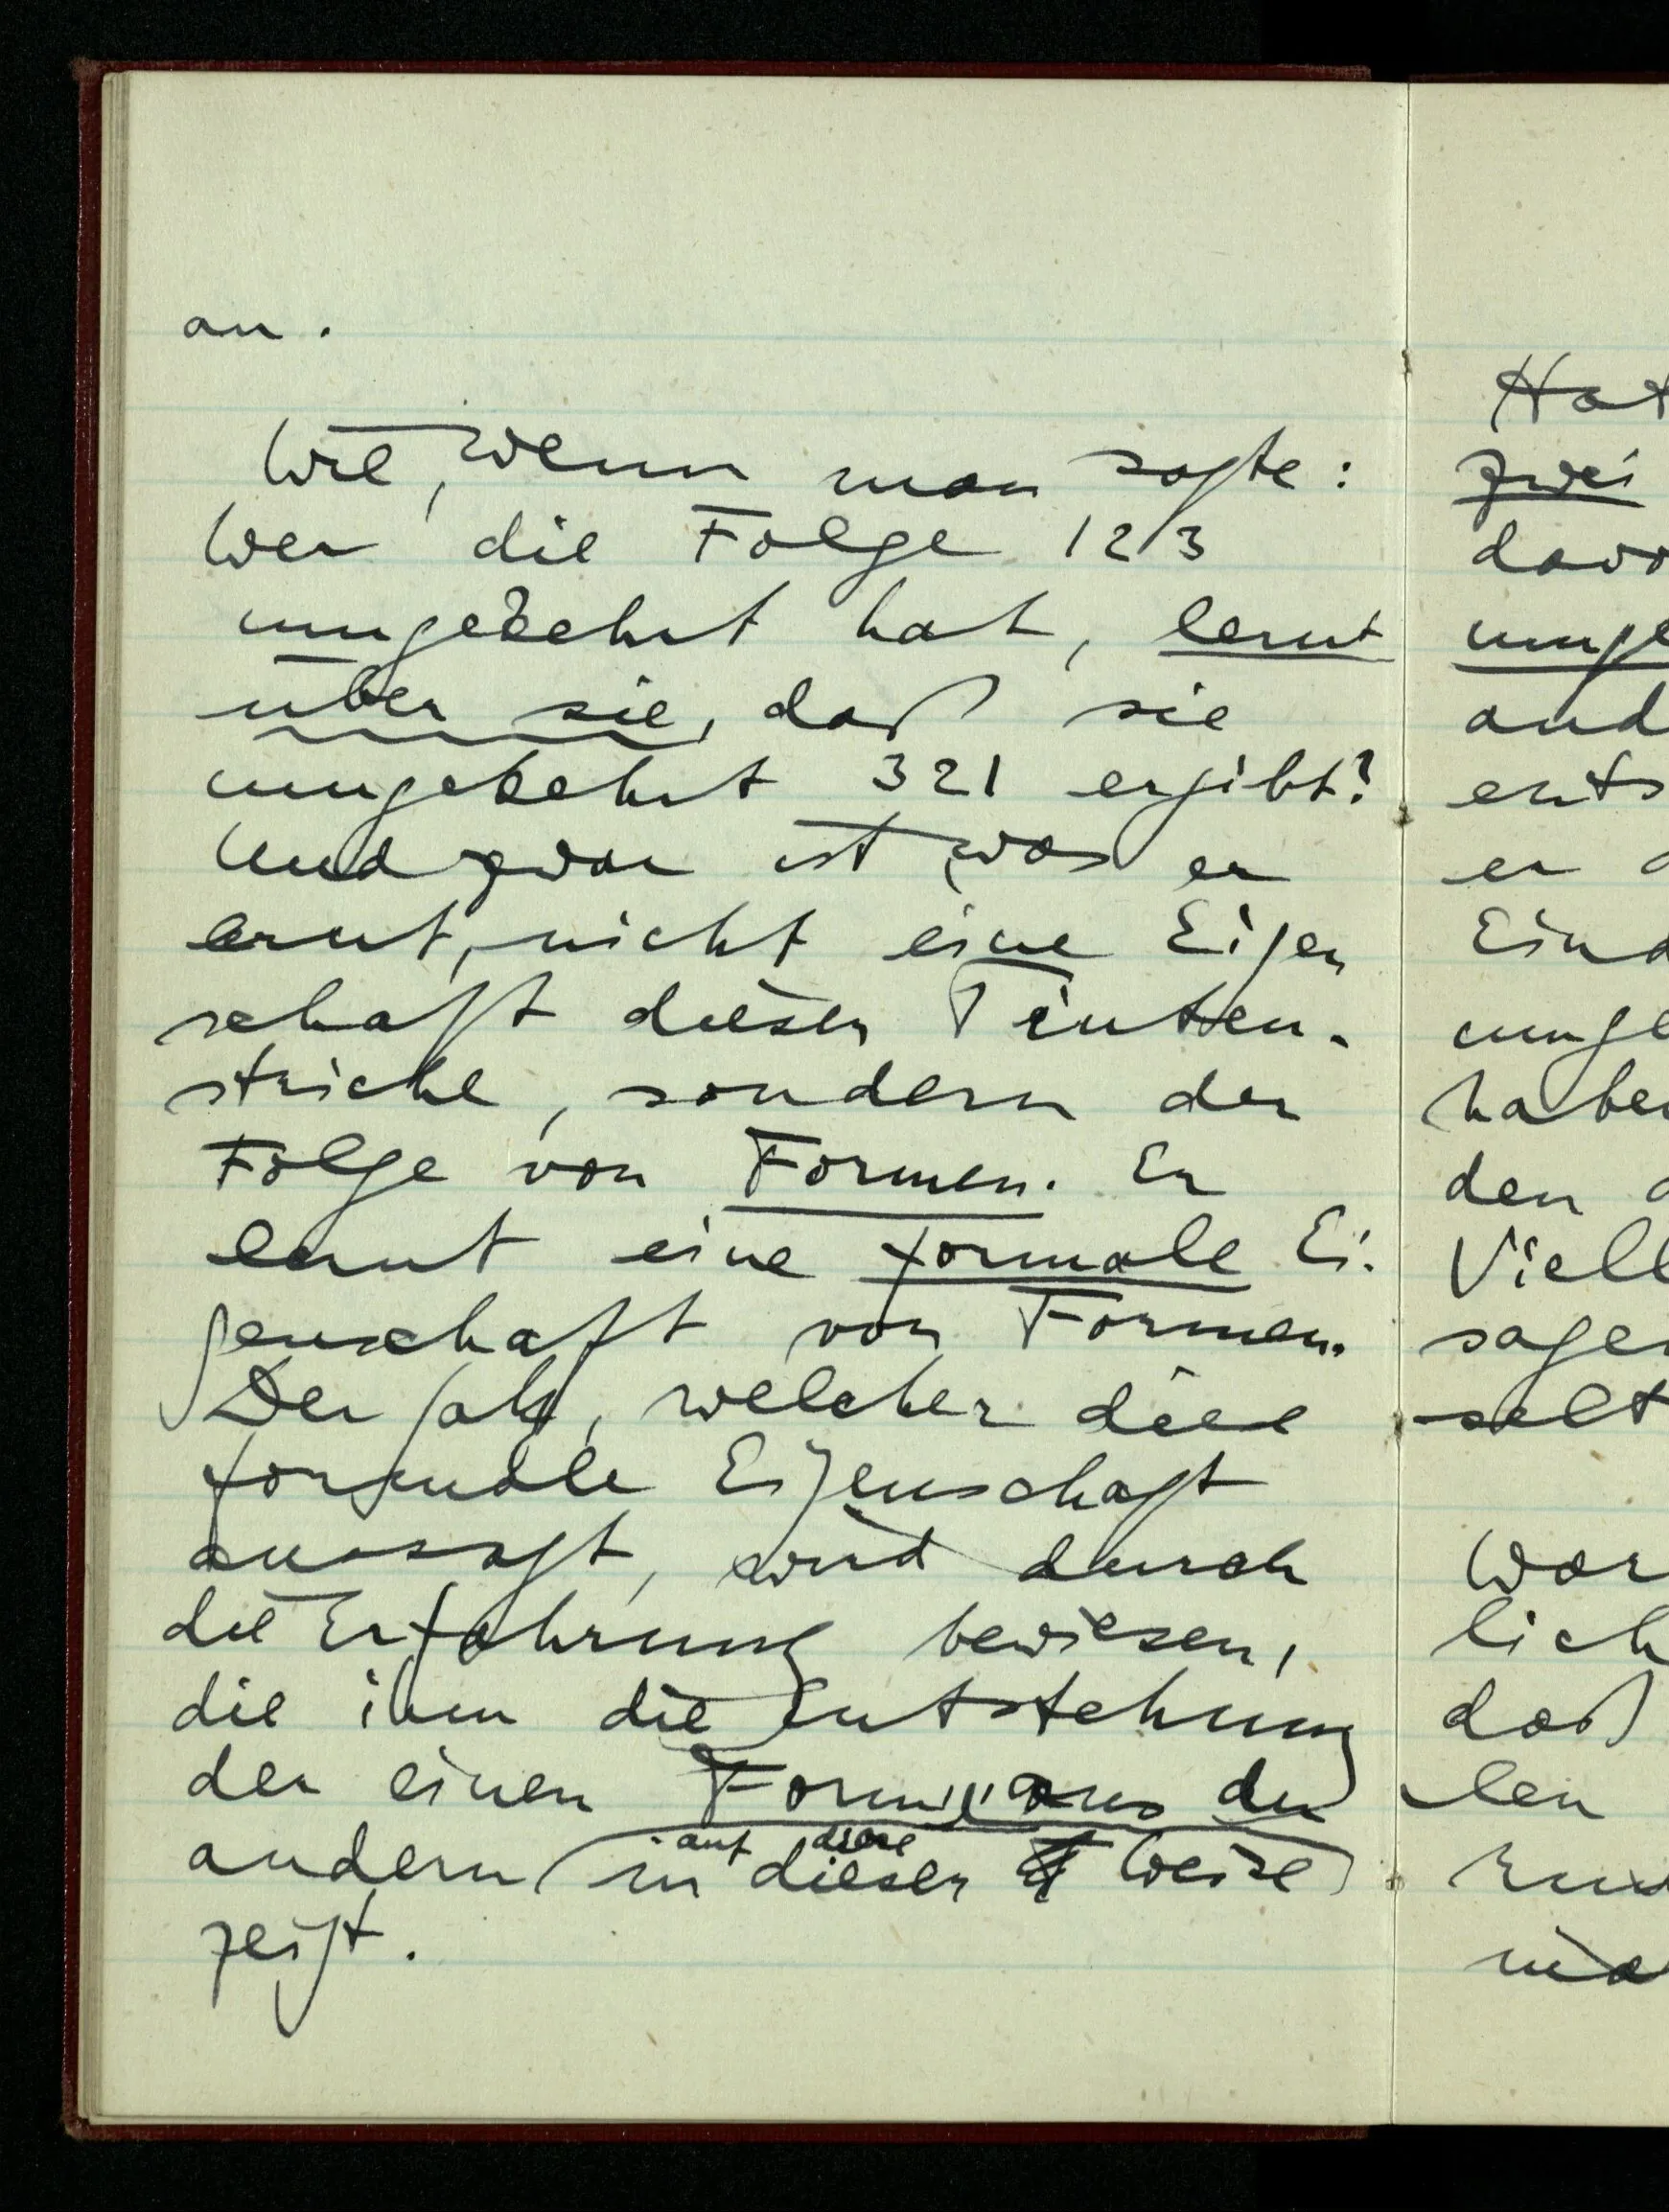 an.
Wie, wenn man sagte:
Wer die Folge 123
umgekehrt hat, lernt
über sie, daß sie
umgekehrt 321 ergibt?
Und zwar ist was er
lernt, nicht eine Eigen
schaft dieser Tinten-
striche, sondern der
Folge von Formen. Er
lernt eine formale Ei-
genschaft von Formen.
Der Satz, welcher diese
formale Eigenschaft
aussagt, wird durch
die Erfahrung bewiesen,
die ihm die Entstehung
der einen Form aus der
auf diese
andern in dieser Weise
zeigt.
Hat
zwei
davo
umge
and
ents
er
Eind
umge
haben
den
Viell
sagen
selt
War
lich
daß
len